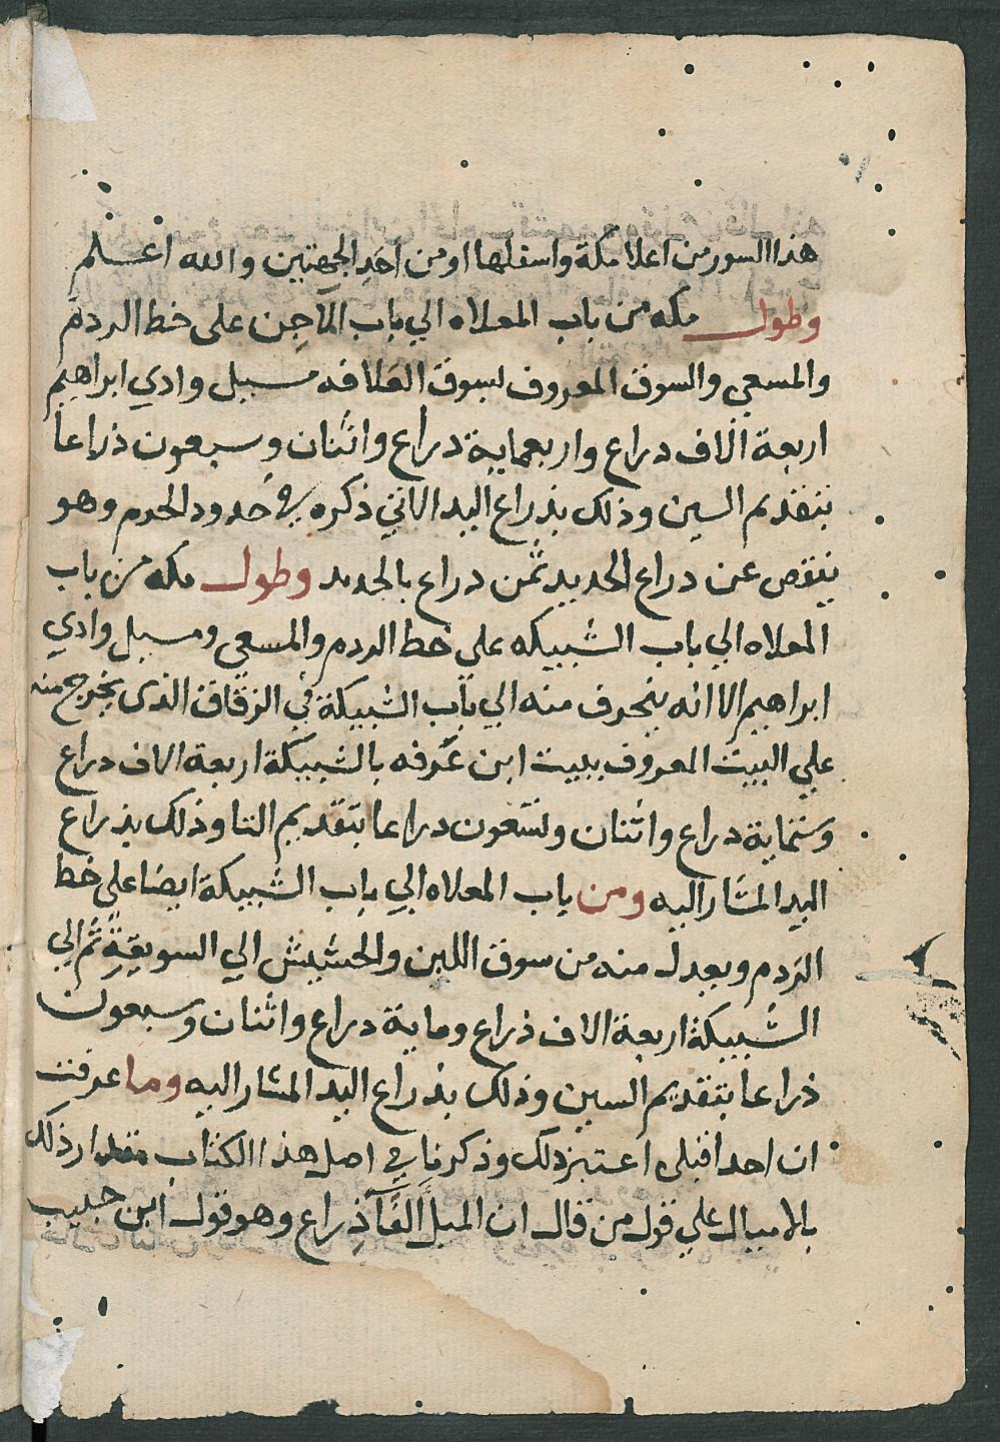 هذا السور من اعلا مكة واسفلها او من احد الجهتين والله اعلم
وطول مكه من باب المعلاه الي باب الماجن على خط الردم
والمسعي والسوق المعروف بسوق العلافه مسيل وادي ابراهيم
اربعة الاف دراع واربعماية دراع واثنان وسبعون ذراعا
بتقديم السين وذلك بذراع اليد الاتي ذكره في حدود الحرم وهو
ينقص عن دراع الحديد ثمن دراع بالحديد وطول مكه من باب
المعلاه الي باب الشبيكه على خط الردم والمسعي ومسيل وادي
ابراهيم الا انه ينحرف منه الي باب الشبيكة في الزقاق الذى يخرج منه
علي البيت المعروف ببيت ابن عرفه بالشبيكة اربعة الاف دراع
وستماية دراع واثنان وتسعون دراعا بتقديم التا وذلك بذراع
اليد المشار اليه ومن باب المعلاه الي باب الشبيكة ايضا على خط
الردم ويعدل منه من سوق اللبن والحشيش الي السويقة ثم الي
الشبيكة اربعة الاف ذراع وماية دراع واثنان وسبعون
ذراعا بتقديم السين وذلك بذراع اليد المشار اليه وما عرفت
ان احدا قبلي اعتبر ذلك وذكرنا في اصل هذا الكتاب مقدار ذلك
بالاميال علي قول من قال ان الميل الفا ذراع وهو قول ابن حبيب